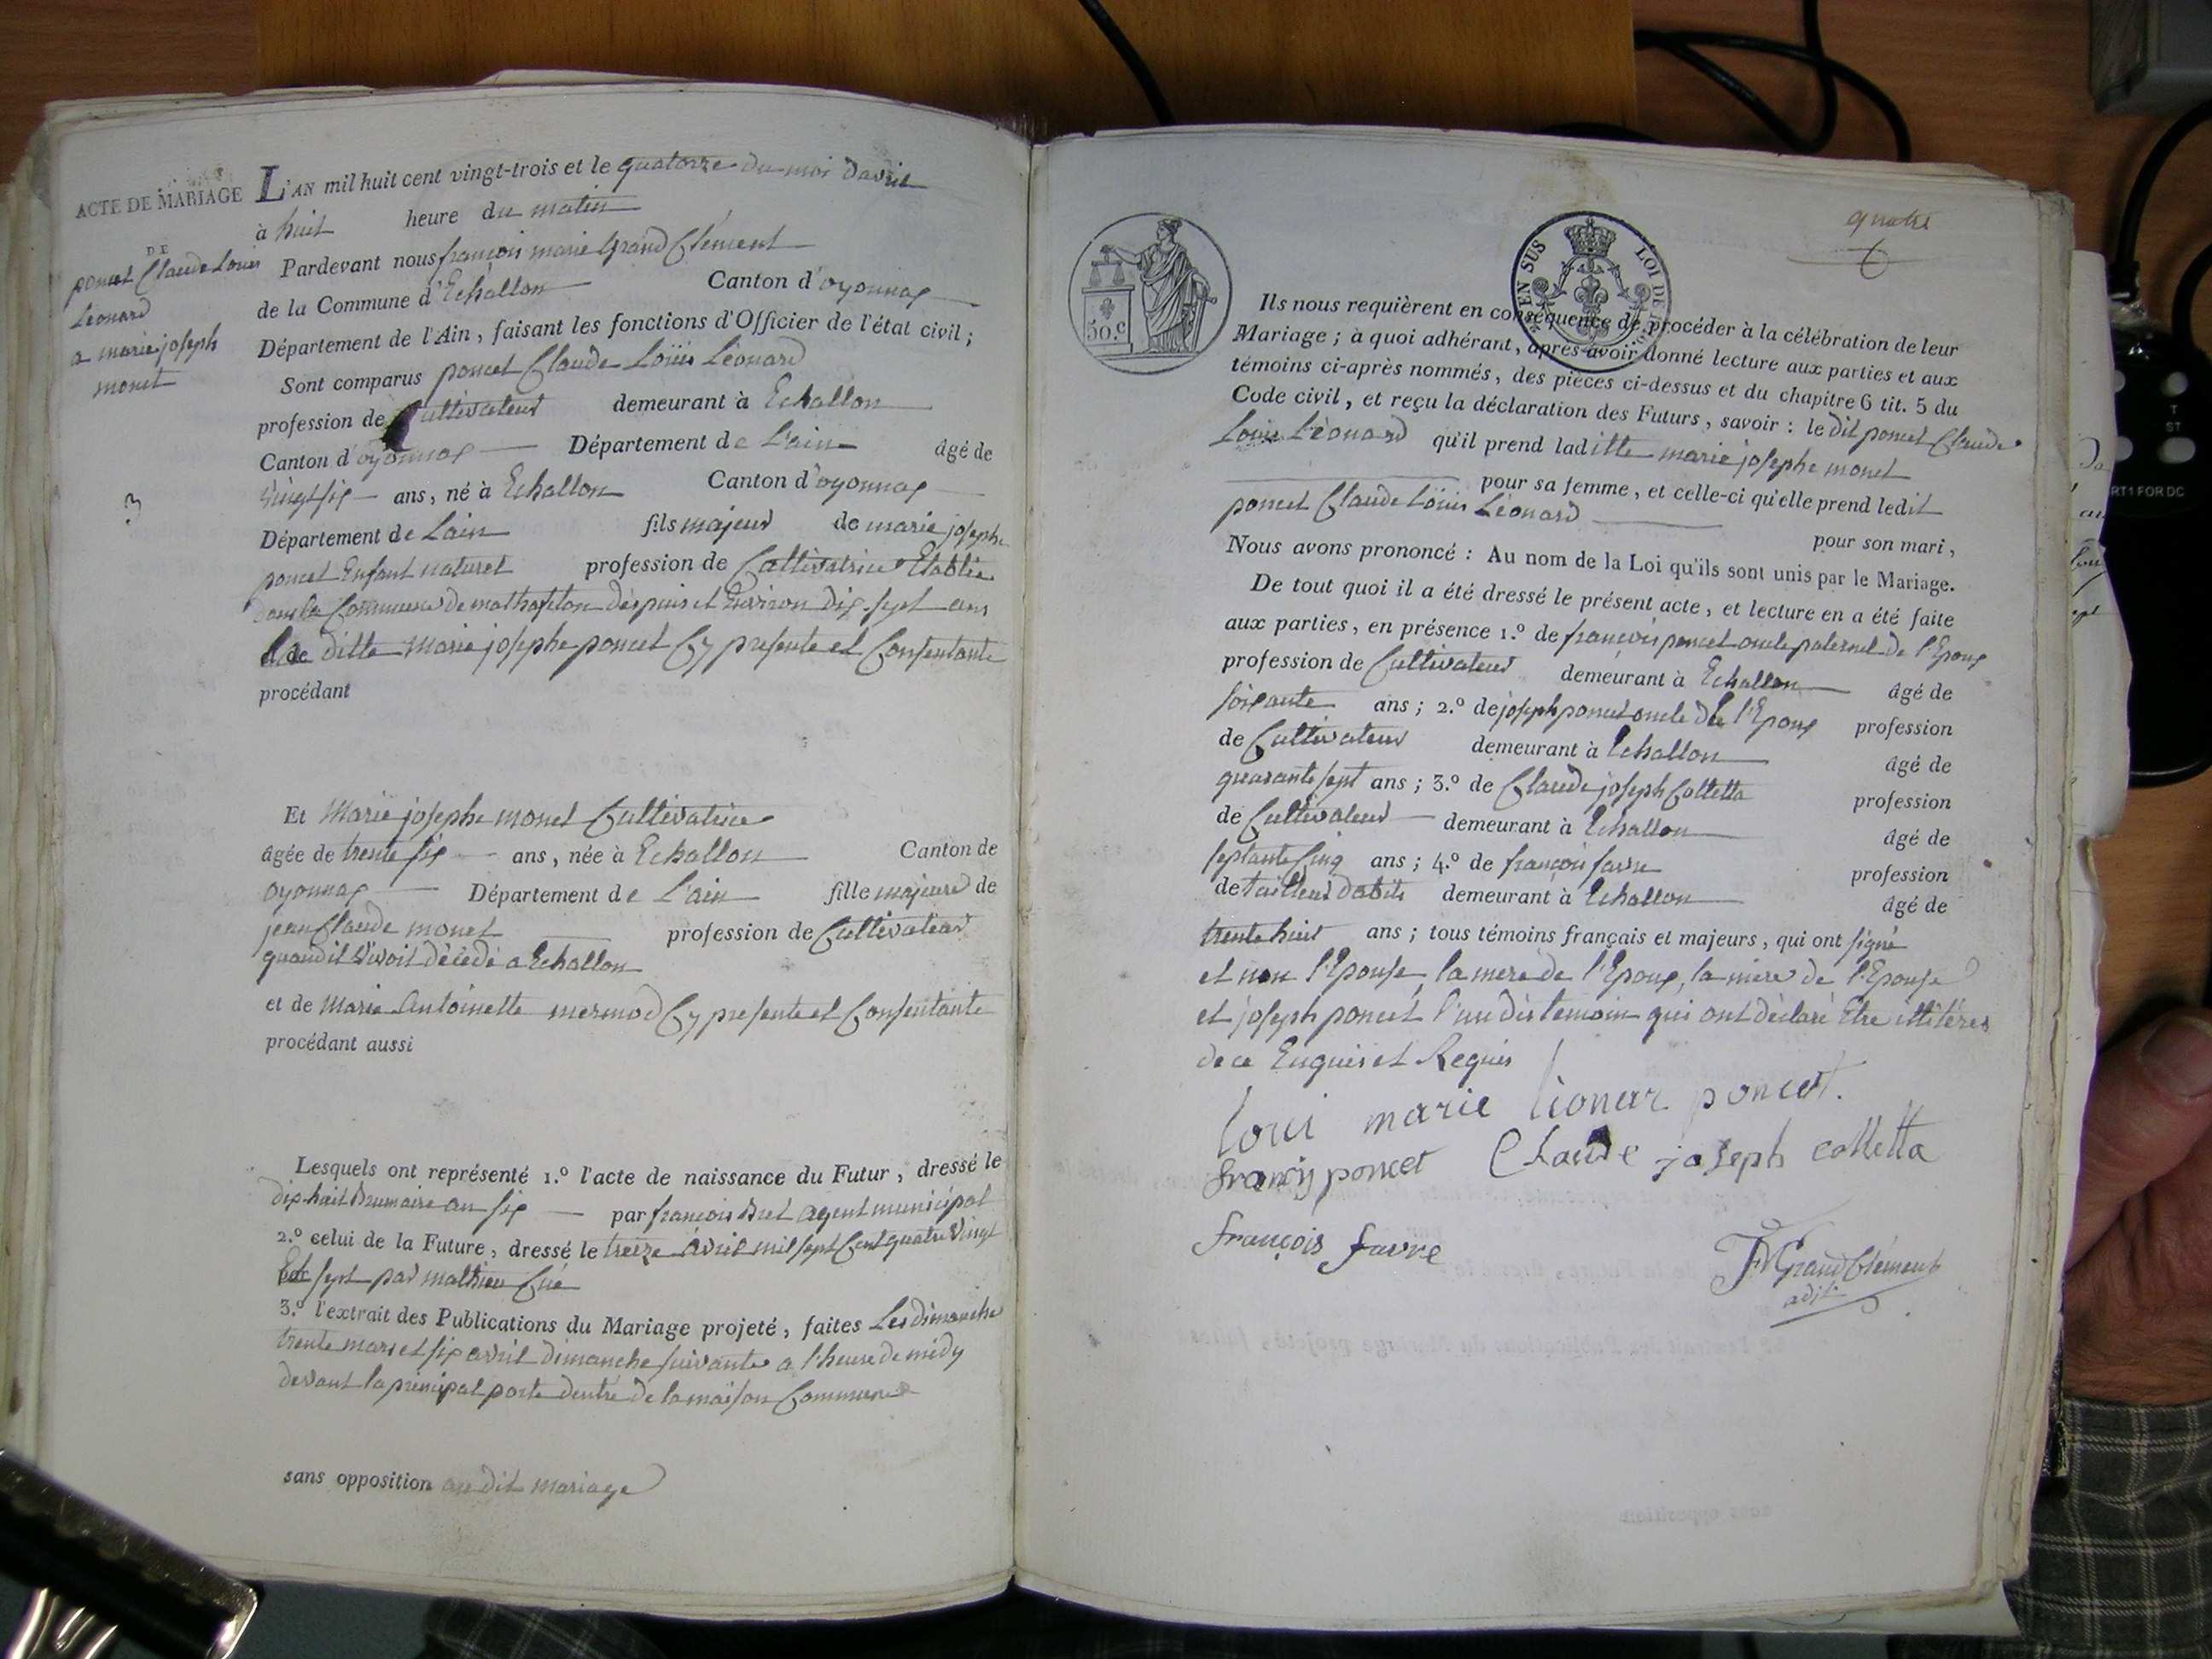 ACTE DE MARIAGE
DE
poncet Claude Louis
Léonard
a marie joseph
monet
3
L'AN mil huit cent vingt-trois et le quatorze du moi davril
à huit heure du matin
Pardevant nous françois marie Grand Clément
de la Commune d'Echallon Canton d'oyonnax
Département de l'Ain, faisant les fonctions d'Officier de l'état civil;
Sont comparus poncet Claude Loüis Léonard
profession de Cultivateur demeurant à Echallon
Canton d'oyonnax Département de L'ain âgé de
vingt six ans, né à Echallon Canton d'oyonnax
Département de Lain fils majeur de marie josephe
poncet Enfant naturel profession de Cultivatrice Etablie
dans la Commune de mathafelon depuis et Environ dix-sept ans
ditte Marie josephe poncet Cy presente et Consentante
procédant
Et Marie josephe monet Cultivatrice
âgée de trente six ans, née à Echallon Canton de
oyonnax Département de L'ain fille majeure de
jean Claude monet profession de Cultivateur
quand il vivoit décédé a Echallon
et de Marie Antoinette mermod Cy presente et Consentante
procédant aussi
Lesquels ont représenté 1.º l'acte de naissance du Futur, dressé le
dix-huit Brumaire an six par françois Bret agent municipal
2.º celui de la Future, dressé le treize avril mil sept Cent quatre vingt
sept par mathieu Curé
3.º l'extrait des Publications du Mariage projeté, faites Les dimanche
trente mars et six avril dimanche suivante a l'heure de midy
devant la principal porte dentré de la maison Commune
sans opposition au dit mariage
quatre
50.c
EN SUS LOI DE
Ils nous requièrent en conséquence de procéder à la célébration de leur
Mariage; à quoi adhérant, après avoir donné lecture aux parties et aux
témoins ci-après nommés, des pièces ci-dessus et du chapitre 6 tit. 5 du
Code civil, et reçu la déclaration des Futurs, savoir: le dit poncet Claude
Louis Léonard qu'il prend laditte marie josephe monet
pour sa femme, et celle-ci qu'elle prend ledit
poncet Claude Loüis Léonard pour son mari,
Nous avons prononcé: Au nom de la Loi qu'ils sont unis par le Mariage.
De tout quoi il a été dressé le présent acte, et lecture en a été faite
aux parties, en présence 1.º de françois poncet oncle paternel de l'Epoux
profession de Cultivateur demeurant à Echallon âgé de
soixante ans; 2.º de joseph poncet oncle de l'Epoux profession
de Cultivateur demeurant à Echallon âgé de
quarante sept ans; 3.º de Claude joseph Colletta profession
de Cultivateur demeurant à Echallon âgé de
septante Cinq ans; 4.º de françois favre profession
de tailleur dabits demeurant à Echallon âgé de
trente huit ans; tous témoins français et majeurs, qui ont signé
et non l'Epouse, la mere de l'Epoux, la mere de l'Epouse
et joseph poncet l'un des temoin qui ont déclaré Etre illitéres
de ce Enquis et Requis
loui marie lionar poncet.
francy poncet Claude joseph colletta
françois favre
FM Grand Clément
adjt.